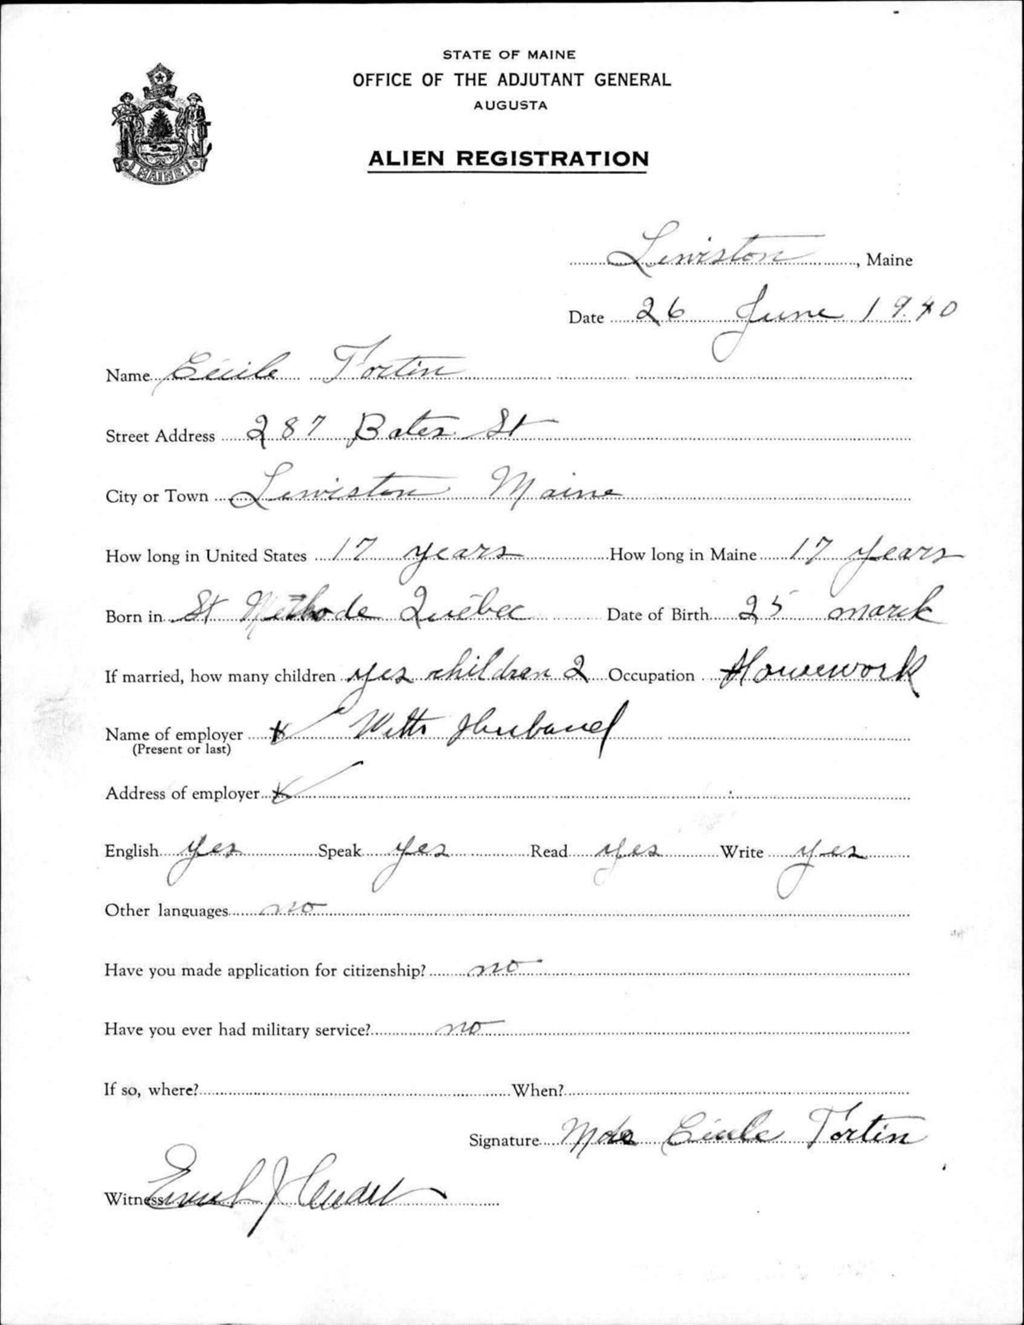 STATE OF MAINE
OFFICE OF THE ADJUTANT GENERAL
AUGUSTA
MAINE
ALIEN REGISTRATION
Lewiston, Maine
Date 26 June 1940
Name Cécile Fortin
Street Address 287 Bates St
City or Town Lewiston Maine
How long in United States 17 years How long in Maine 17 years
Born in St Methode Québec Date of Birth 25 march
If married, how many children yes children 2 Occupation Housework
Name of employer x With Husband
(Present or last)
Address of employer x
English yes Speak yes Read yes Write yes
Other languages no
Have you made application for citizenship? no
Have you ever had military service? no
If so, where? When?
Signature Mde Cécile Fortin
Witness